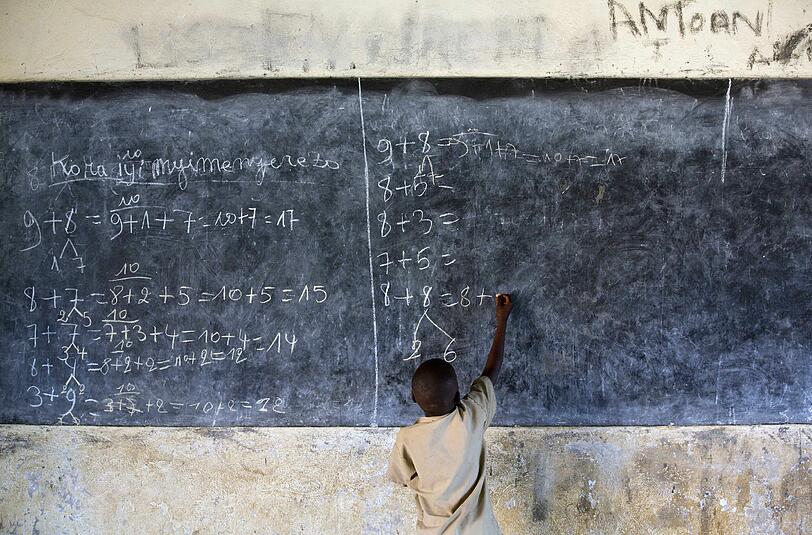 ANTOANI
10
Kora iyi myimenyerezo
10
9+8 = 9+1+7=10+7=17
1 7
10
8+7=8+2+5=10+5=15
2 5
10
7+7=7+3+4=10+4=14
3 4
10
8+4=8+2+2=10+2=12
10
3+9= +2=10+2=12
9+8=9+1+7=10+7=17
8+5=
8+3=
7+5=
8+8=8+
2 6